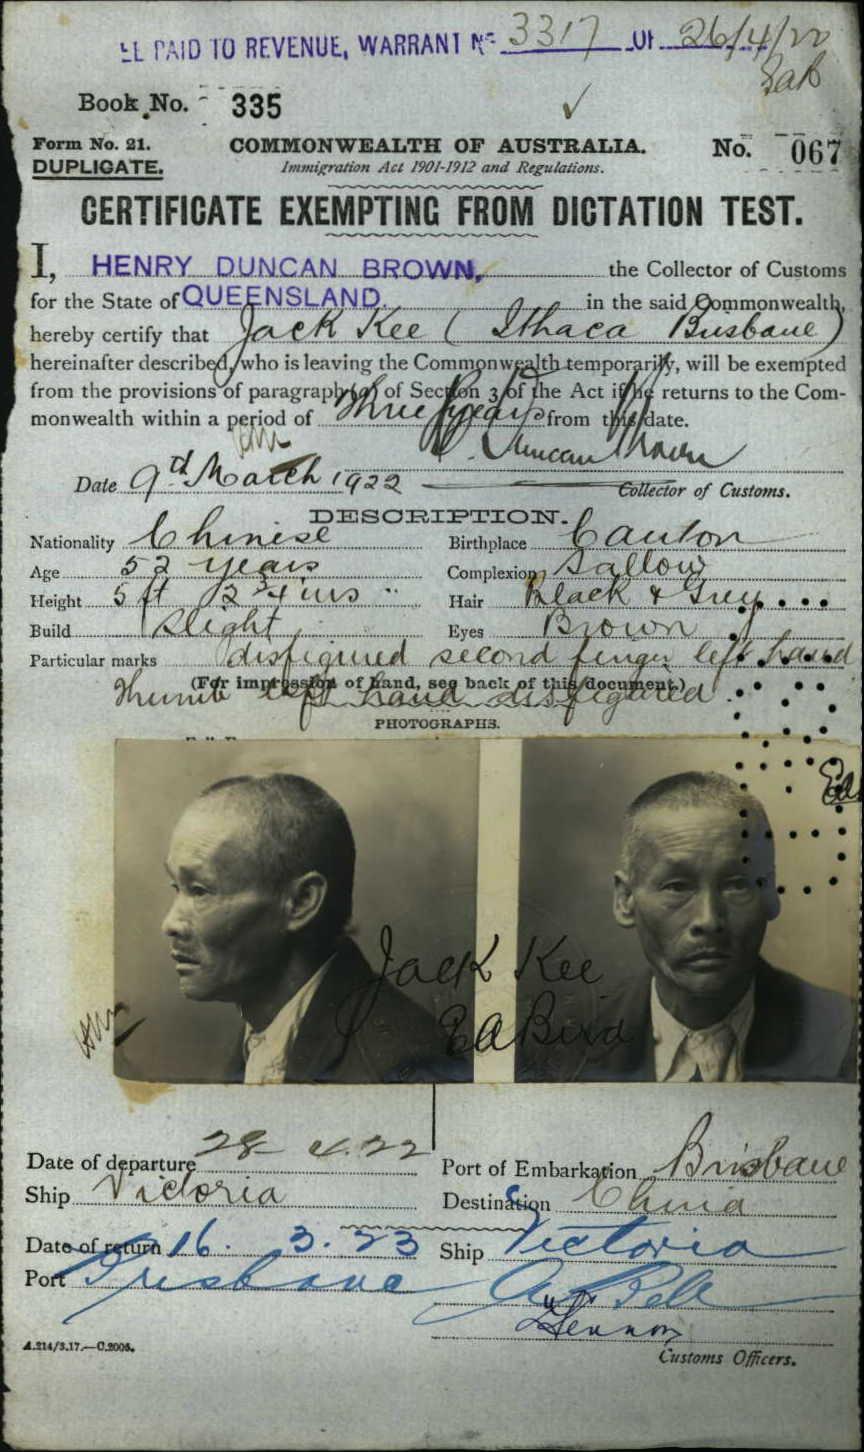 EL PAID TO REVENUE, WARRANT No 3317 OF 26/4/22
EaB
Book No. 335
Form No. 21. COMMONWEALTH OF AUSTRALIA. No. 067
DUPLICATE. Immigration Act 1901-1912 and Regulations.
CERTIFICATE EXEMPTING FROM DICTATION TEST.
I, HENRY DUNCAN BROWN, the Collector of Customs
for the State of QUEENSLAND. in the said Commonwealth,
hereby certify that Jack Kee (Ithaca Brisbane)
hereinafter described, who is leaving the Commonwealth temporarily, will be exempted
from the provisions of paragraph (a) of Section 3 of the Act if he returns to the Com-
monwealth within a period of three years from this date.
H. Duncan Brown
Date 9th March 1922 Collector of Customs.
DESCRIPTION.
Nationality Chinese Birthplace Canton
Age 52 years Complexion Sallow
Height 5 ft 2 3/4 ins Hair Black & Grey
Build Slight Eyes Brown
Particular marks disfigured second finger left hand
(For impression of hand, see back of this document.)
Thumb left hand disfigured.
PHOTOGRAPHS.
Jack Kee
EA Bird
Date of departure 28 4.22 Port of Embarkation Brisbane
Ship Victoria Destination China
Date of return 16. 3. 23 Ship Victoria
Port Brisbane A Bell
Lennon
A.214/3.17.—C.2005. Customs Officers.